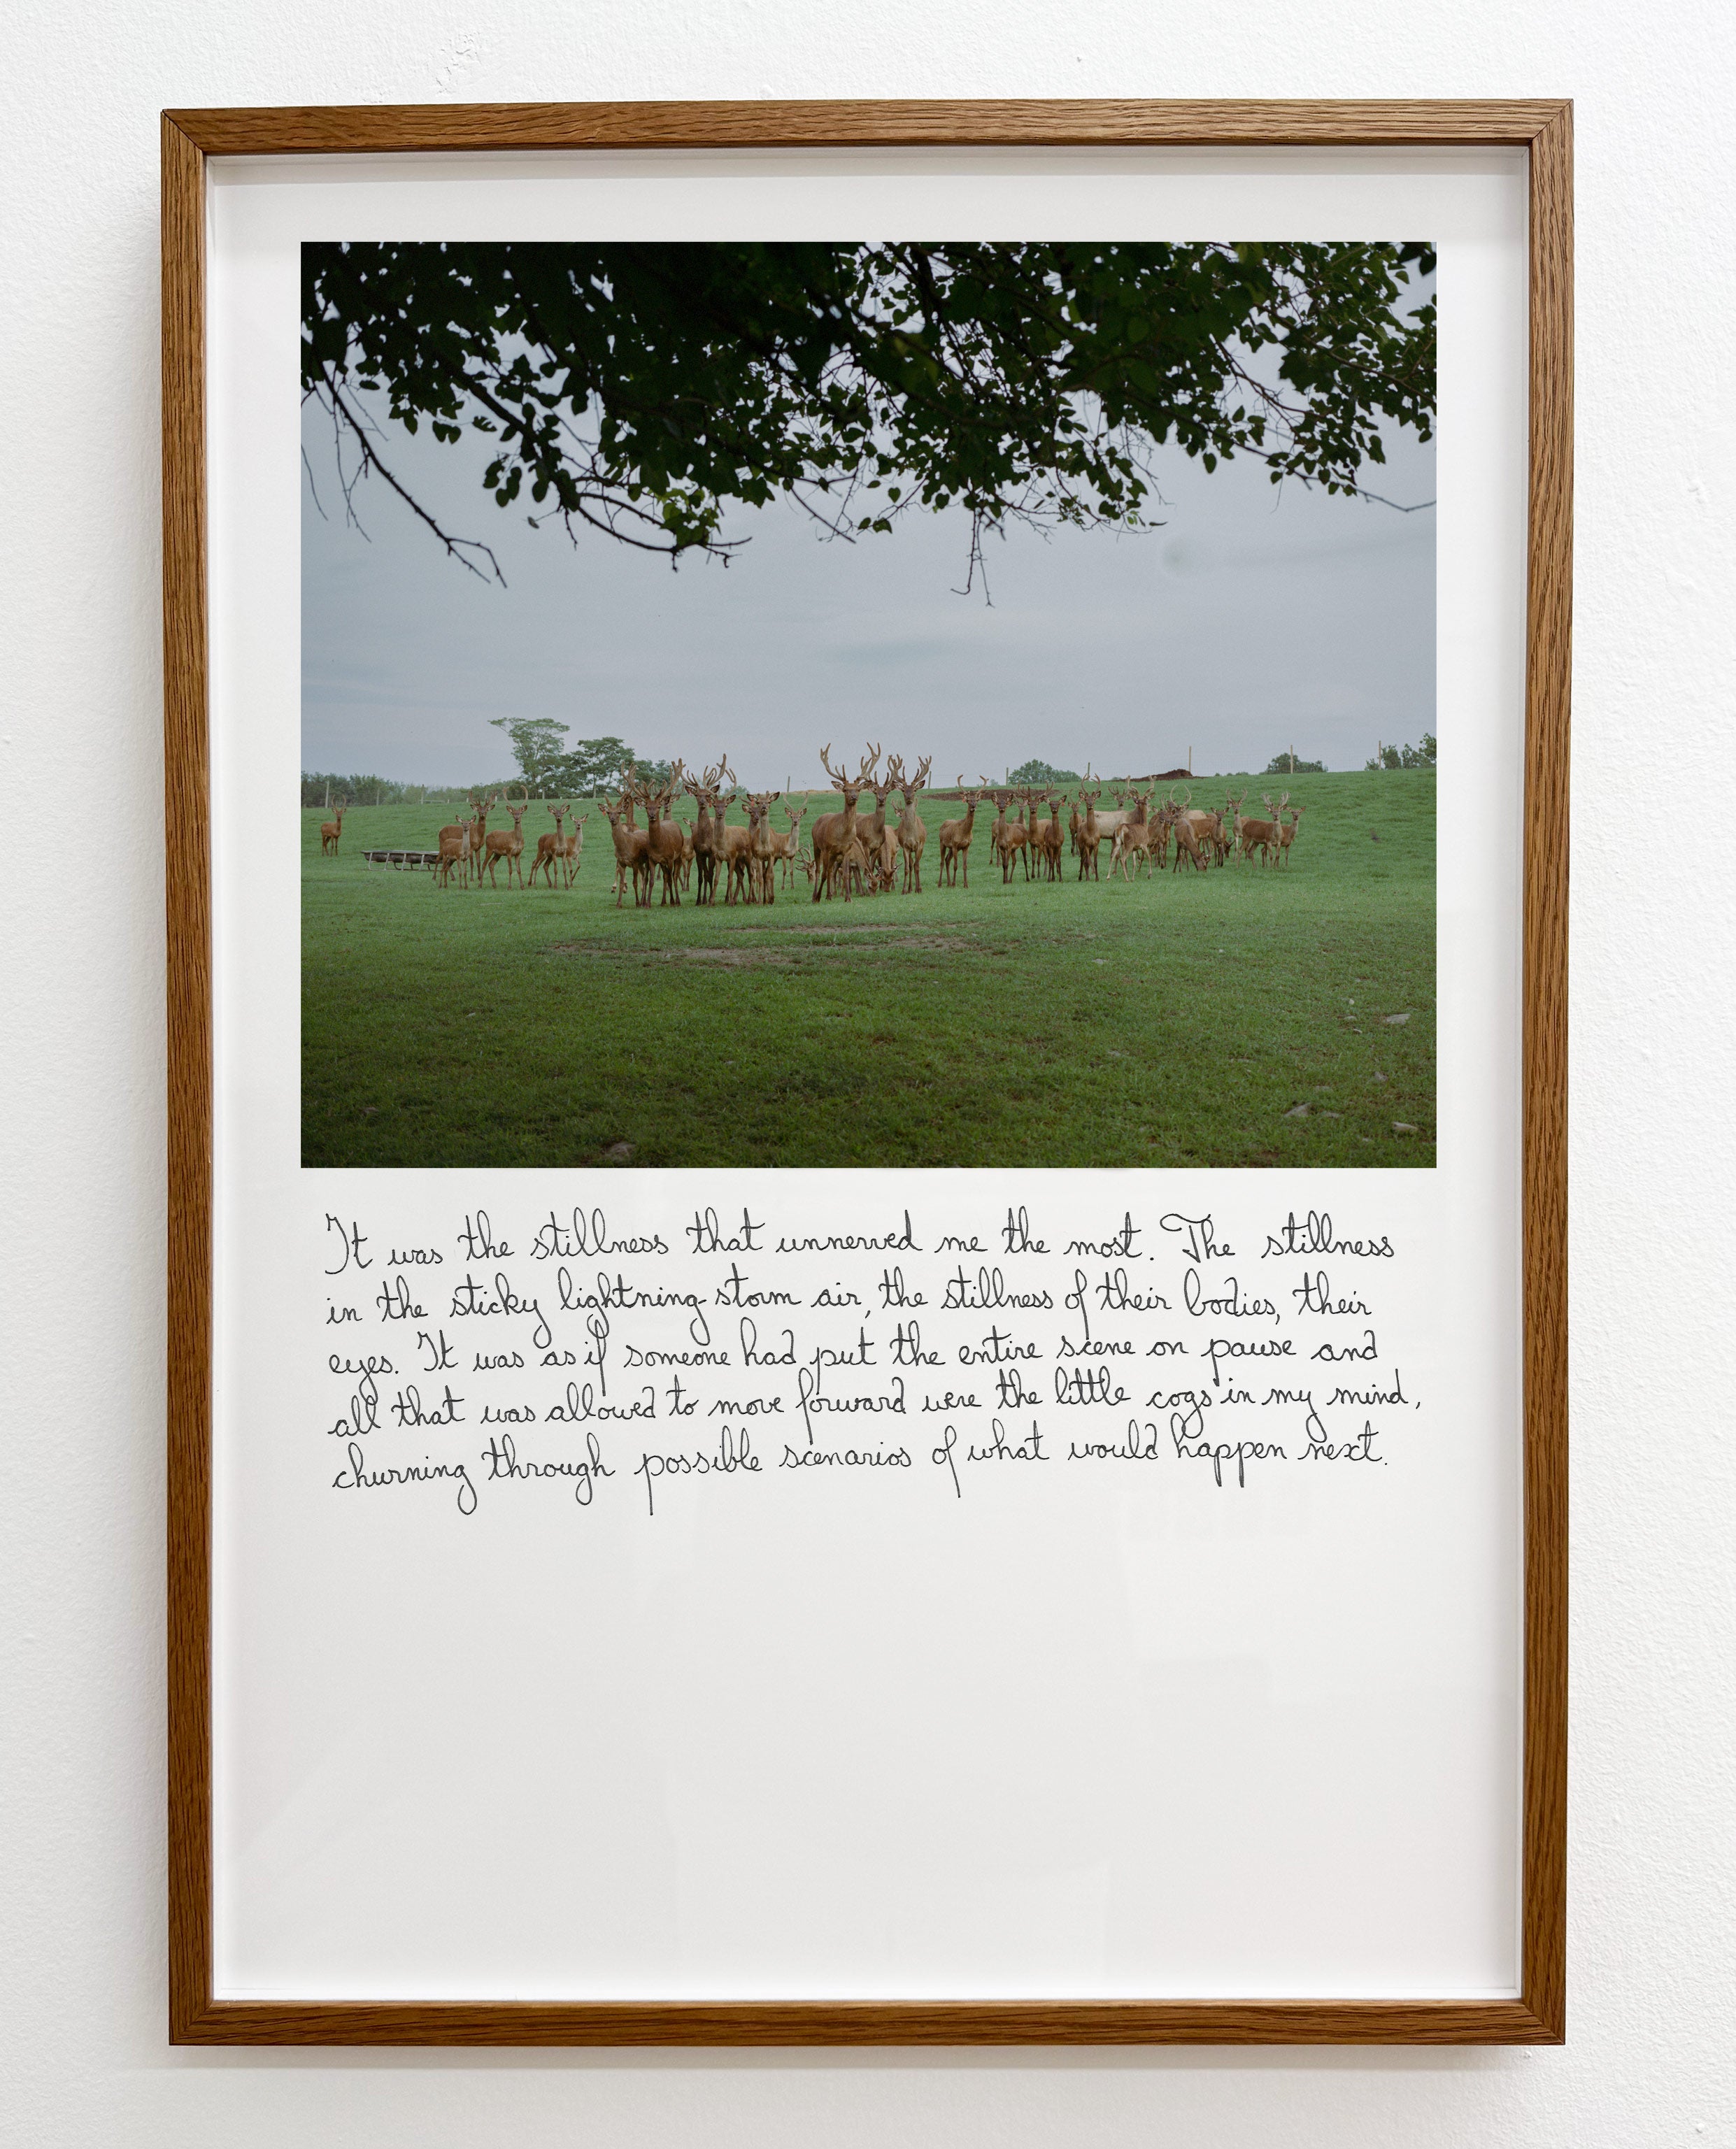 It was the stillness that unnerved me the most. The stillness
in the sticky lightning-storm air, the stillness of their bodies, their
eyes. It was as if someone had put the entire scene on pause and
all that was allowed to move forward were the little cogs in my mind,
churning through possible scenarios of what would happen next.